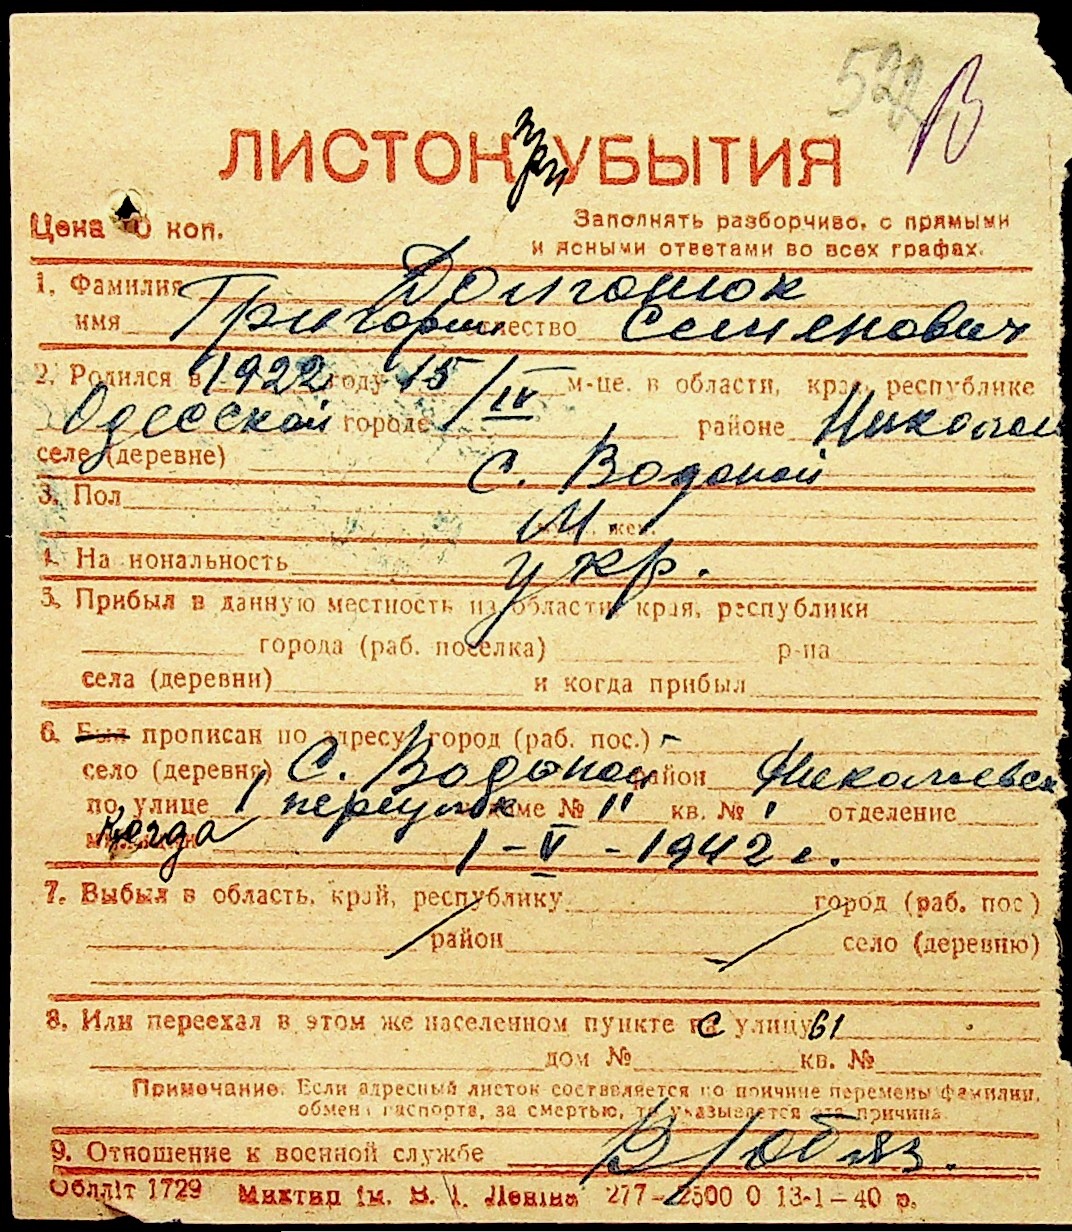 522 В
ЛИСТОК при УБЫТИЯ
Цена 10 коп.
Заполнять разборчиво, с прямыми
и ясными ответами во всех графах.
1. Фамилия Долганюк
имя Григорий отчество Семенович
2. Родился в 1922 году 15/IV м-це. в области, крае, республике
Одесской городе районе Николаев
селе (деревне) с. Водопой
3. Пол М муж. жен.
4. На иональность укр.
5. Прибыл в данную местность из области, края, республики
города (раб. поселка) р-на
села (деревни) и когда прибыл
6. Был прописан по адресу: город (раб. пос.) -
село (деревня) С. Водопой район Николаевск
по улице 1 переулок доме № 11 кв. № 1 отделение
милиции когда 1-V-1942 г.
7. Выбыл в область, край, республику город (раб. пос.)
район село (деревню)
8. Или переехал в этом же населенном пункте на с улицу 61
дом № кв. №
Примечание. Если адресный листок составляется по причине перемены фамилии,
обмена паспорта, за смертью, то указывается эта причина.
9. Отношение к военной службе В/обяз.
Облліт 1729 Миктип ім. В. І. Леніна 277—2500 0 13-1—40 р.